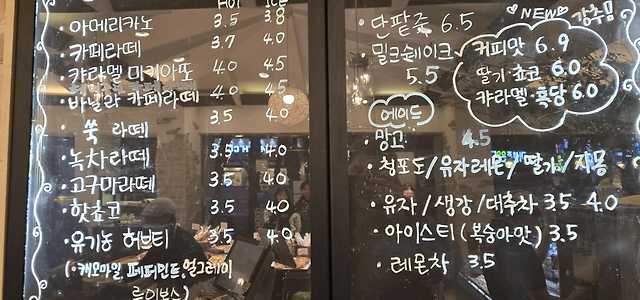 HOT ICE
· 아메리카노 3.5 3.8
· 카페라떼 3.7 4.0
· 캬라멜 마키아또 4.0 4.5
· 바닐라 카페라떼 4.0 4.5
· 쑥 라떼 3.5 4.0
· 녹차라떼 3.5 4.0
· 고구마라떼 3.5 4.0
· 핫쵸코 3.5 4.0
· 유기농 허브티 3.5 4.0
(· 캐모마일 페퍼민트 얼그레이
루이보스)
· 단팥죽 6.5
· 밀크쉐이크
5.5
NEW 강추
커피맛 6.9
딸기·쵸코 6.0
캬라멜·흑당 6.0
에이드
· 망고 4.5
· 청포도/유자레몬/딸기/자몽
· 유자/생강/대추차 3.5 4.0
· 아이스티(복숭아맛) 3.5
· 레몬차 3.5